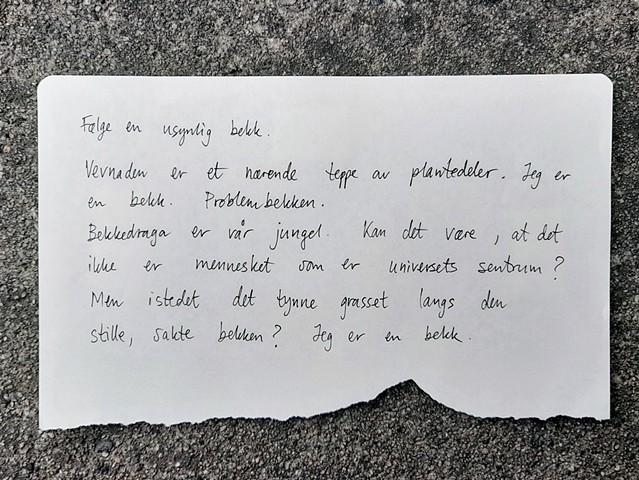 Følge en usynlig bekk.
Vevnaden er et nærende teppe av plantedeler. Jeg er
en bekk. Problembekken.
Bekkedraga er vår jungel. Kan det være, at det
ikke er mennesket som er universets sentrum?
Men istedet det tynne grasset langs den
stille, sakte bekken? Jeg er en bekk.